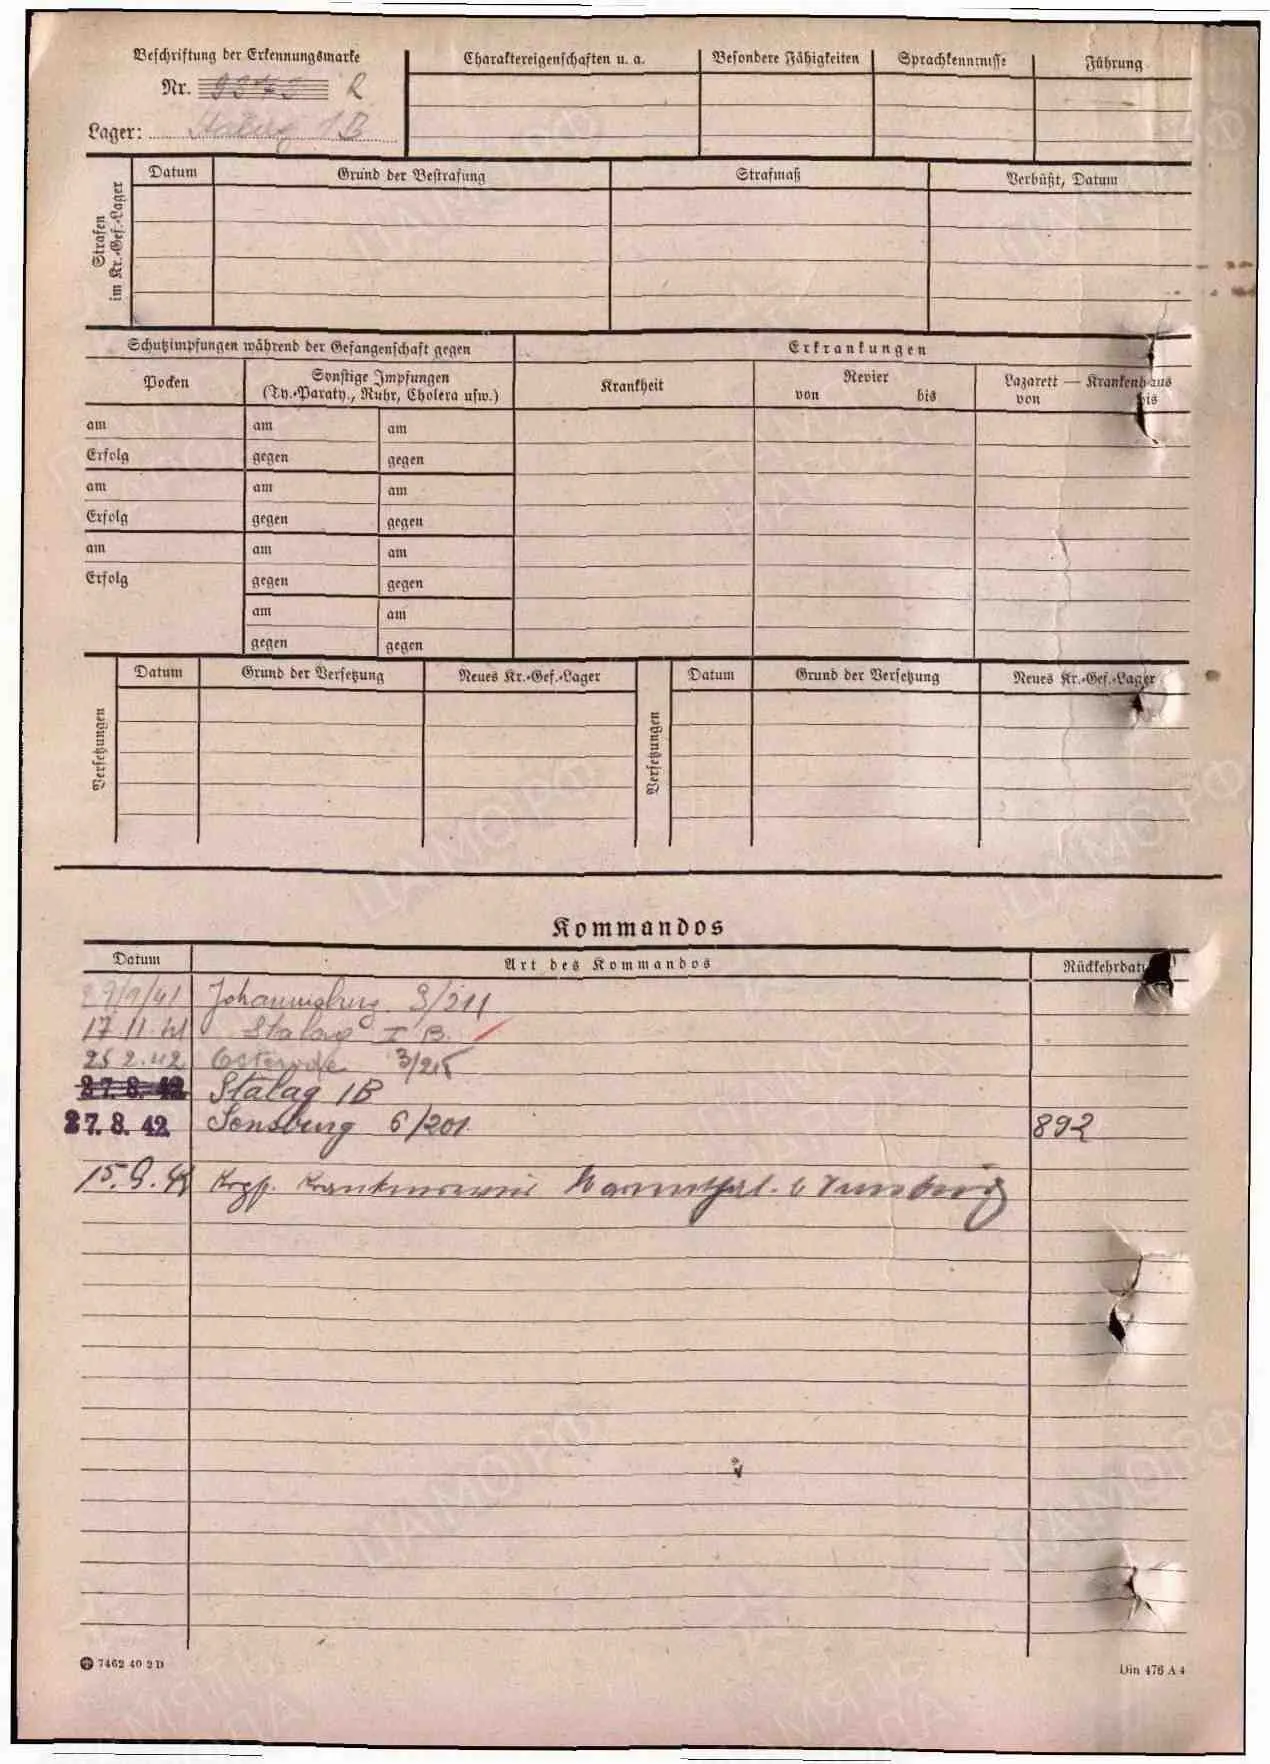 Beschriftung der Erkennungsmarke
Nr. R
Lager: 1 B
Charaktereigenschaften u. a.
Besondere Fähigkeiten
Sprachkenntnisse
Führung
Strafen
im Kr.-Gef.-Lager
Datum
Grund der Bestrafung
Strafmaß
Verbüßt, Datum
Schutzimpfungen während der Gefangenschaft gegen
Erkrankungen
Pocken
Sonstige Impfungen
(Ty.-Paraty., Ruhr, Cholera usw.)
Krankheit
Revier
von bis
Lazarett — Krankenhaus
von bis
am am am
Erfolg gegen gegen
am am am
Erfolg gegen gegen
am am am
Erfolg gegen gegen
am am
gegen gegen
Versetzungen
Datum Grund der Versetzung Neues Kr.-Gef.-Lager
Versetzungen
Datum Grund der Versetzung Neues Kr.-Gef.-Lager
Kommandos
Datum Art des Kommandos
Johannisburg 3/211
17 11. 41 Stalag I B.
25 2. 42 Osterode
27. 8. 42 Stalag 1B
27. 8. 42 Sensburg 6/201. 892
15. 9. Krgf.
7462 40 2 D
Din 476 A 4
ЦАМО РФ